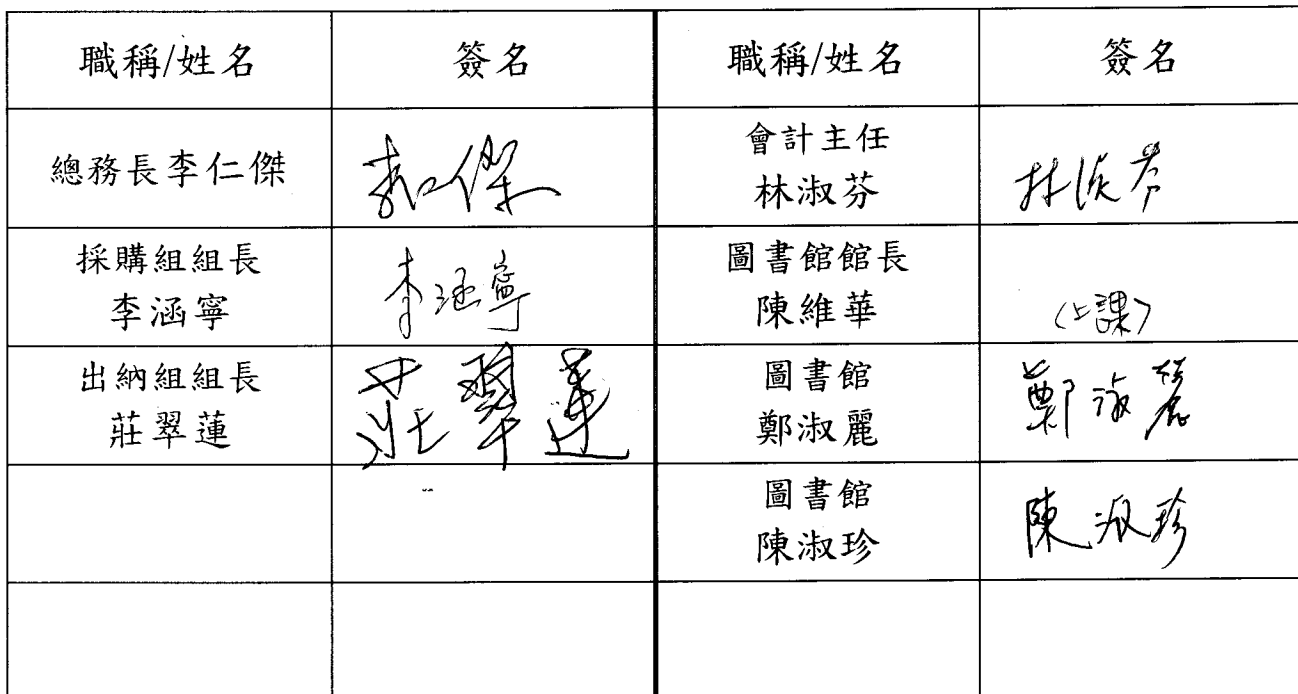 職稱/姓名 簽名 職稱/姓名 簽名
總務長李仁傑 李仁傑 會計主任 林淑芬 林淑芬
採購組組長 李涵寧 李涵寧 圖書館館長 陳維華 (上課)
出納組組長 莊翠蓮 莊翠蓮 圖書館 鄭淑麗 鄭淑麗
圖書館 陳淑珍 陳淑珍